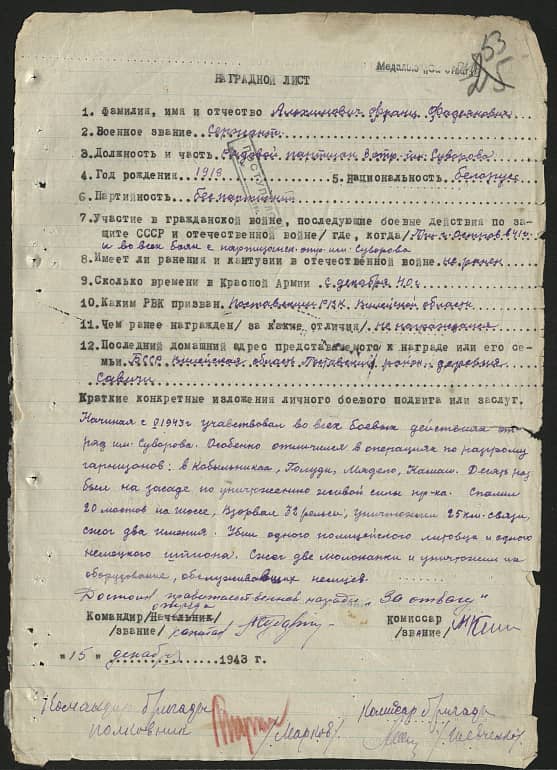 Медаль „За отвагу"
53
25
НАГРАДНОЙ ЛИСТ
1. Фамилия, имя и отчество Алюхнович Франц Фадеянович
2. Военное звание Сержант
3. Должность и часть рядовой партизан отр. им. Суворова
ПОСТУПИЛО
4. Год рождения 1919 5. Национальность белорус
6. Партийность беспартийный
7. Участие в гражданской войне, последующие боевые действия по за-
щите СССР и отечественной войне/ где, когда/ в 41 г.
и во всех боях с партизанск. отр. им. Суворова
8. Имеет ли ранения и кантузии в отечественной войне не ранен
9. Сколько времени в Красной Армии с декабря 40 г
10. Каким РВК призван Поставским РВК Вилейской области
11. Чем ранее награжден/ за какие отличия/ не награждался
12. Последний домашний адрес представляемого к награде или его се-
мьи БССР Вилейская область Поставский район деревня
Савичи
Краткие конкретные изложения личного боевого подвига или заслуг.
Начиная с 1943 г участвовал во всех боевых действиях от
ряд им. Суворова. Особенно отличился в операциях по разгрому
гарнизонов: в Кобыльниках, Мядело, Десять раз
был на засаде по уничтожению живой силы пр-ка. Спалил
20 мостов на шоссе, Взорвал 32 рельсы, уничтожил 25 км. связи,
сжог два имения. Убил одного полицейского литовца и одного
немецкого шпиона. Сжог две молочанки и уничтожил их
оборудование, обслуживавших немцев.
Достоин правительственной награды „За отвагу"
Командир/Начальник/ отряда комиссар
/звание/ капитан /звание/
"15" декабря 1943 г.
Командир бригады Комиссар бригады
полковник /Марков/ /Шевченко/